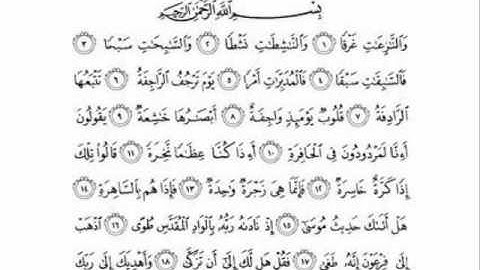 بِسْمِ ٱللَّهِ ٱلرَّحْمَٰنِ ٱلرَّحِيمِ
وَٱلنَّٰزِعَٰتِ غَرْقًا ١ وَٱلنَّٰشِطَٰتِ نَشْطًا ٢ وَٱلسَّٰبِحَٰتِ سَبْحًا ٣
فَٱلسَّٰبِقَٰتِ سَبْقًا ٤ فَٱلْمُدَبِّرَٰتِ أَمْرًا ٥ يَوْمَ تَرْجُفُ ٱلرَّاجِفَةُ ٦ تَتْبَعُهَا
ٱلرَّادِفَةُ ٧ قُلُوبٌ يَوْمَئِذٍ وَاجِفَةٌ ٨ أَبْصَٰرُهَا خَٰشِعَةٌ ٩ يَقُولُونَ
أَءِنَّا لَمَرْدُودُونَ فِى ٱلْحَافِرَةِ ١٠ أَءِذَا كُنَّا عِظَٰمًا نَّخِرَةً ١١ قَالُوا۟ تِلْكَ
إِذًا كَرَّةٌ خَاسِرَةٌ ١٢ فَإِنَّمَا هِىَ زَجْرَةٌ وَٰحِدَةٌ ١٣ فَإِذَا هُم بِٱلسَّاهِرَةِ ١٤
هَلْ أَتَىٰكَ حَدِيثُ مُوسَىٰٓ ١٥ إِذْ نَادَىٰهُ رَبُّهُۥ بِٱلْوَادِ ٱلْمُقَدَّسِ طُوًى ١٦ ٱذْهَبْ
إِلَىٰ فِرْعَوْنَ إِنَّهُۥ طَغَىٰ ١٧ فَقُلْ هَل لَّكَ إِلَىٰٓ أَن تَزَكَّىٰ ١٨ وَأَهْدِيَكَ إِلَىٰ رَبِّكَ